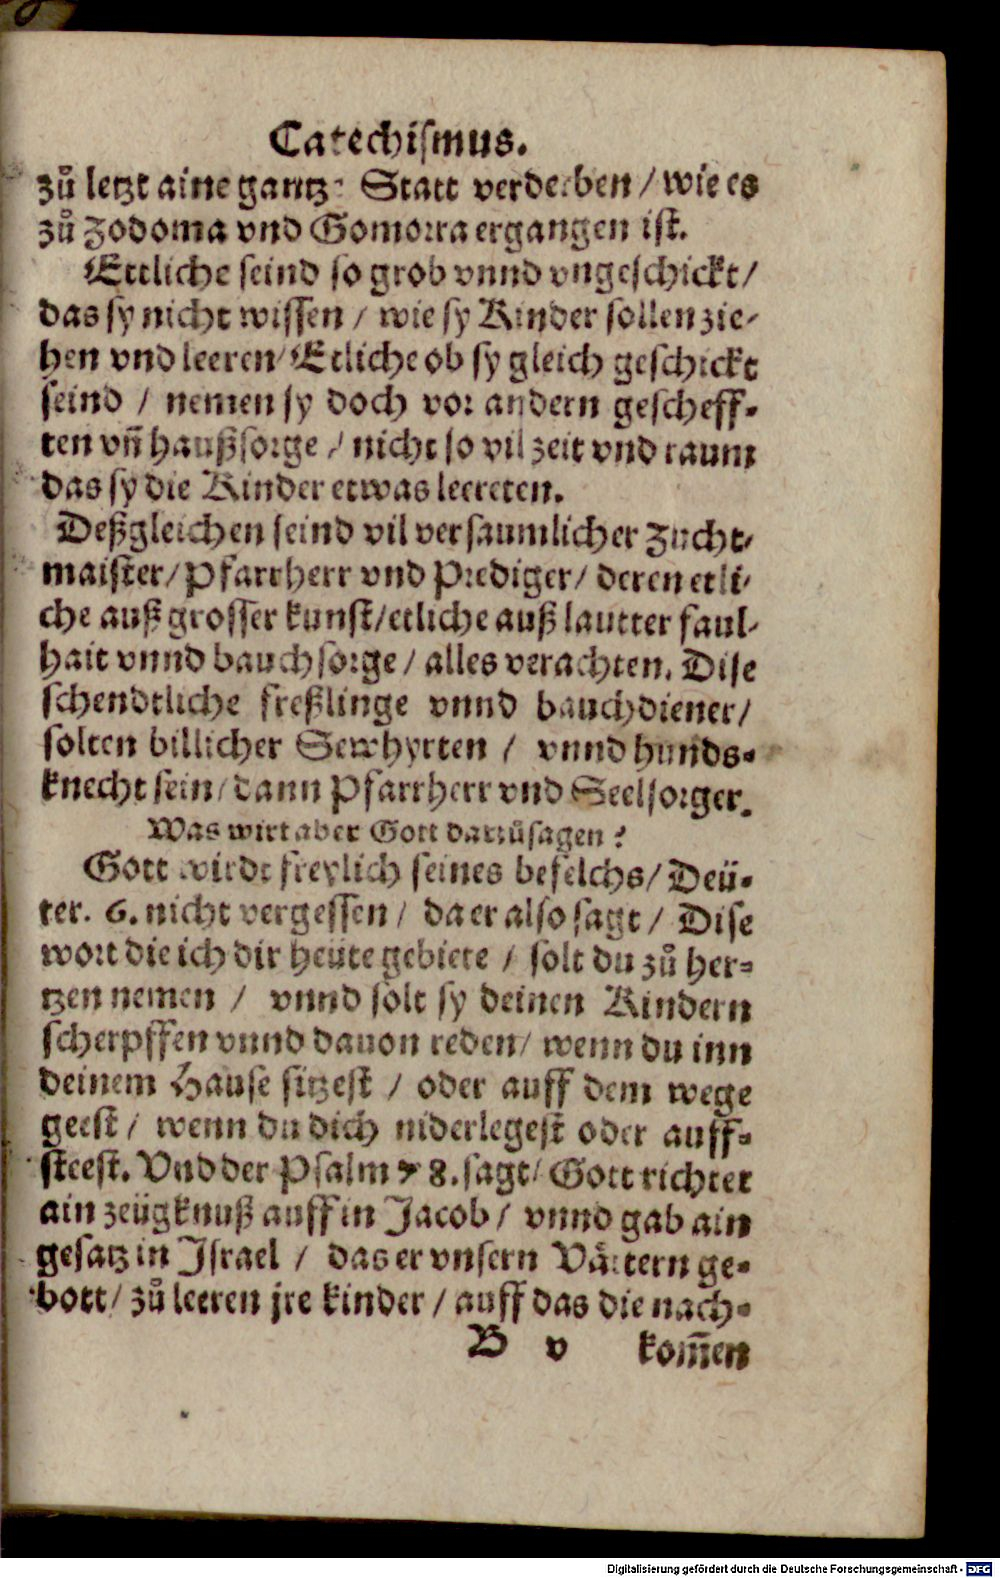 Catechiſmus.
zů letzt aine gantze Statt verderben / wie es
zů Zodoma vnd Gomorra ergangen iſt.
Ettliche ſeind ſo grob vnnd vngeſchickt /
das ſy nicht wiſſen / wie ſy Kinder ſollen zie⸗
hen vnd leeren / Etliche ob ſy gleich geſchickt
ſeind / nemen ſy doch vor andern geſcheff⸗
ten vñ haußſorge / nicht ſo vil zeit vnd raum
das ſy die Kinder etwas leereten.
Deßgleichen ſeind vil verſaumlicher Zucht⸗
maiſter / Pfarrherr vnd Prediger / deren etli⸗
che auß groſſer kunſt / etliche auß lautter faul⸗
hait vnnd bauchſorge / alles verachten. Diſe
ſchendtliche freßlinge vnnd bauchdiener /
ſolten billicher Sewhyrten / vnnd hunds⸗
knecht ſein / dann Pfarrherr vnd Seelſorger.
Was wirt aber Gott darzůſagen?
Gott wirdt freylich ſeines befelchs / Deü⸗
ter. 6. nicht vergeſſen / da er alſo ſagt / Diſe
wort die ich dir heüte gebiete / ſolt du zů her⸗
tzen nemen / vnnd ſolt ſy deinen Kindern
ſcherpffen vnnd dauon reden / wenn du inn
deinem Hauſe ſitzeſt / oder auff dem wege
geeſt / wenn du dich niderlegeſt oder auff⸗
ſteeſt. Vnd der Pſalm 78. ſagt / Gott richtet
ain zeügknuß auff in Jacob / vnnd gab ain
geſatz in Jſrael / das er vnſern Vättern ge⸗
bott / zů leeren jre kinder / auff das die nach⸗
B v kom̃en
Digitalisierung gefördert durch die Deutsche Forschungsgemeinschaft - DFG